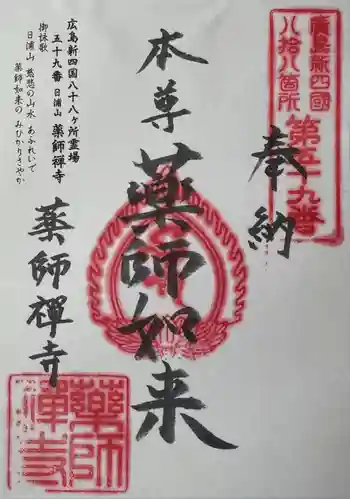 廣島新四國
八拾八箇所
第五十九番
奉納
本尊
薬師如来
広島新四国八十八ヶ所霊場
五十九番 日浦山 薬師禅寺
御詠歌
日浦山 慈悲の山水 あふれいで
薬師如来の みひかりさやか
薬師禪寺
薬師
禪寺